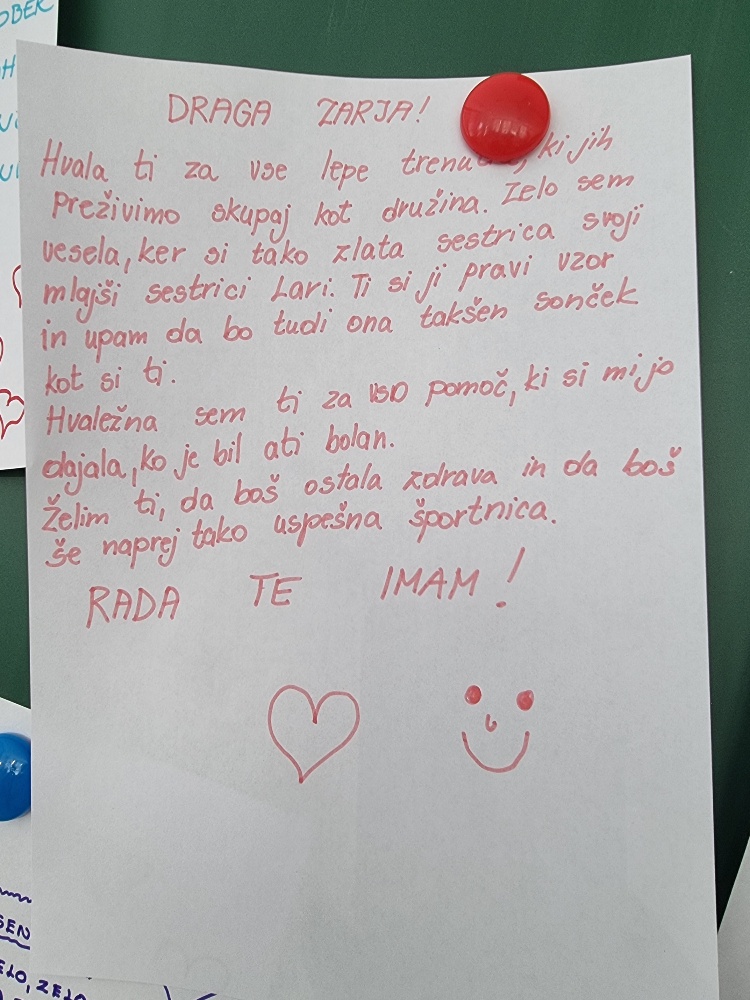 DRAGA ZARJA!
Hvala ti za vse lepe ki jih
preživimo skupaj kot družina. Zelo sem
vesela, ker si tako zlata sestrica svoji
mlajši sestrici Lari. Ti si ji pravi vzor
in upam da bo tudi ona takšen sonček
kot si ti.
Hvaležna sem ti za vso pomoč, ki si mi jo
dajala, ko je bil ati bolan.
Želim ti, da boš ostala zdrava in da boš
še naprej tako uspešna športnica.
RADA TE IMAM!
OBER